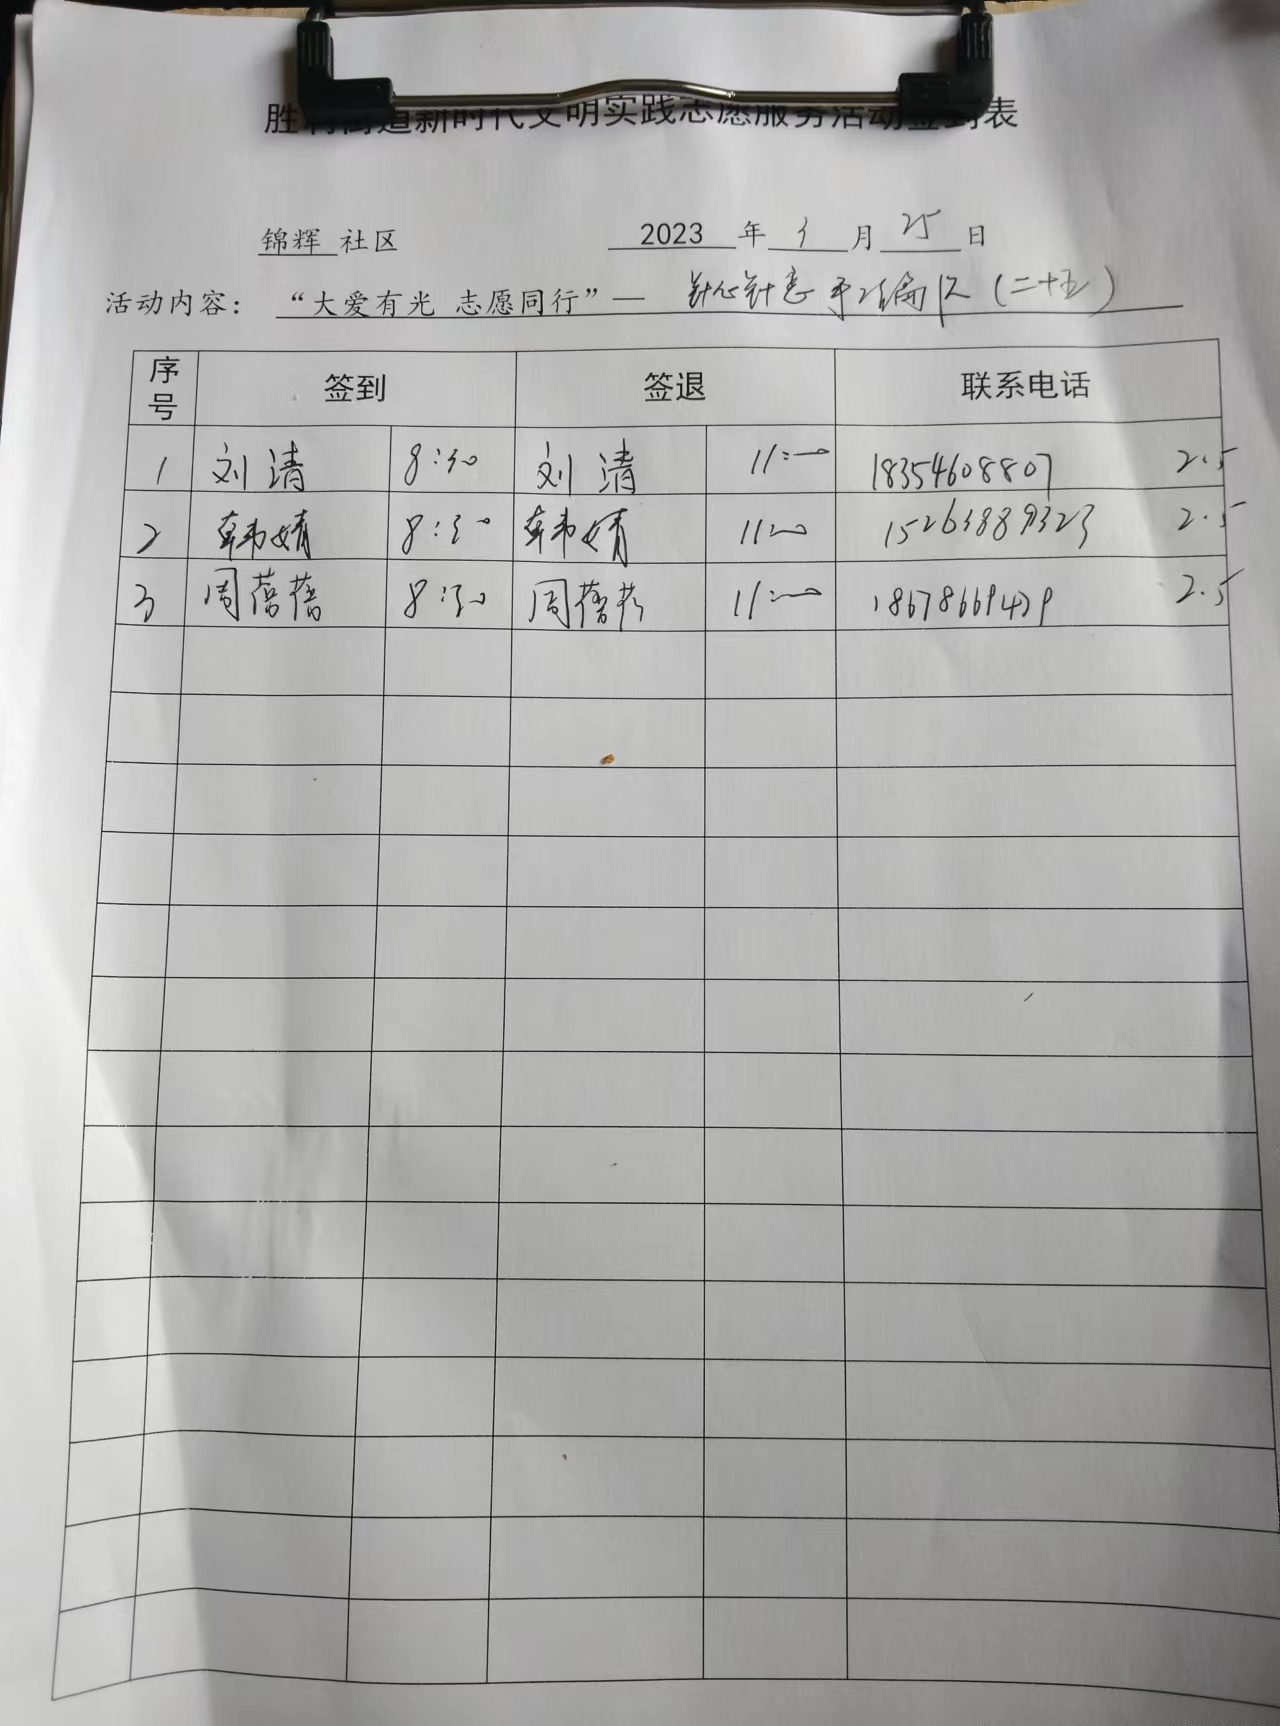 胜利街道新时代文明实践志愿服务活动签到表
锦辉 社区 2023 年 3 月 25 日
活动内容： “大爱有光 志愿同行”— 针心针意 手工编织（二十五）
序号 签到 签退 联系电话
1 刘清 8:30 刘清 11:00 18354608807 2.5
2 韩婧 8:30 韩婧 11:00 15263889323 2.5
3 周蓓蓓 8:30 周蓓蓓 11:00 2.5